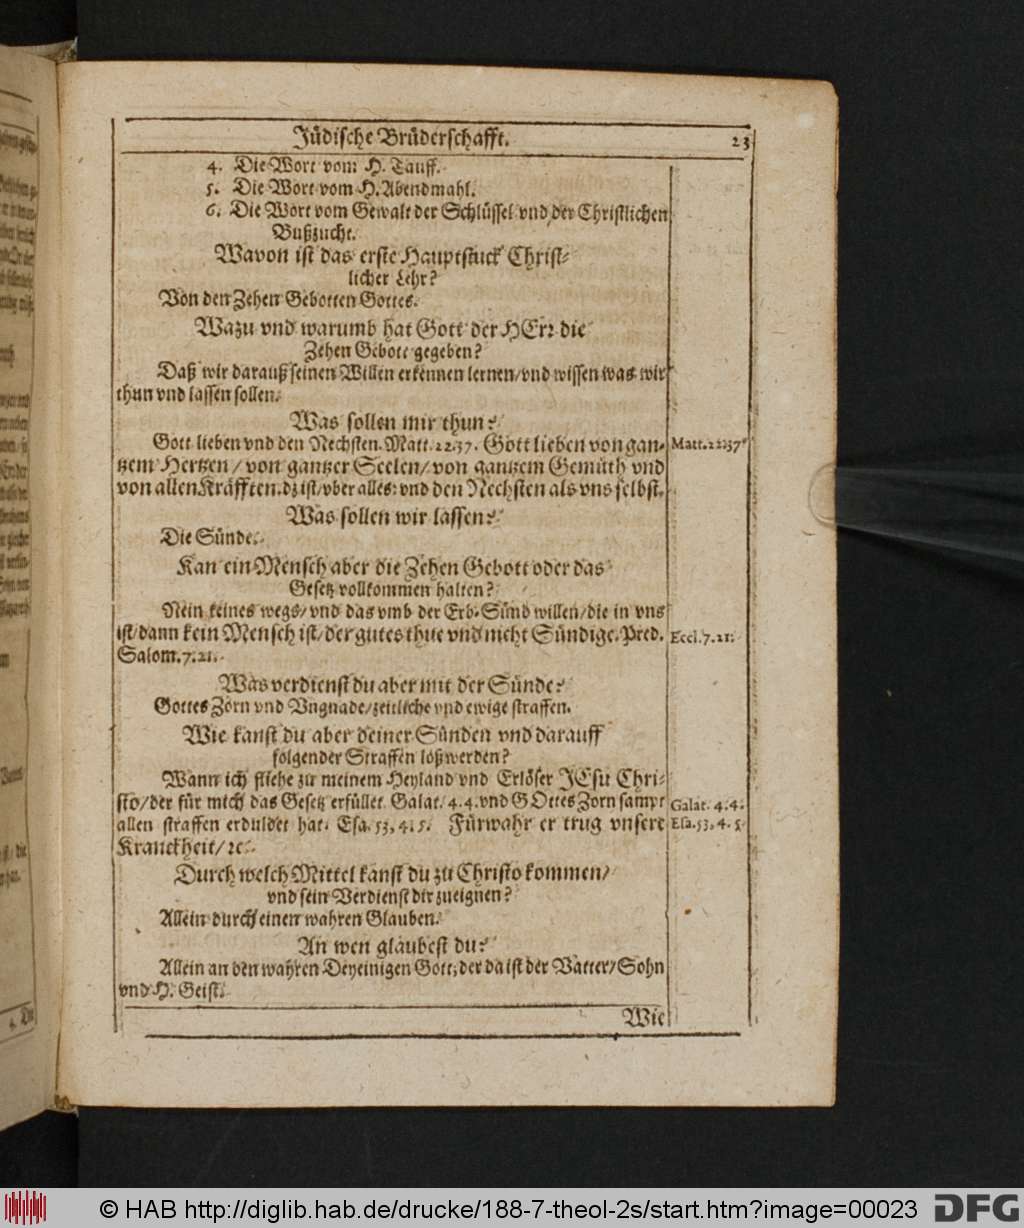 Jüdische Brüderschafft. 23
4. Die Wort vom H. Tauff.
5. Die Wort vom H. Abendmahl.
6. Die Wort vom Gewalt der Schlüssel vnd der Christlichen
Bußzucht.
Wavon ist das erste Hauptstuck Christ-
licher Lehr?
Von den Zehen Gebotten Gottes.
Wazu vnd warumb hat Gott der HErr die
Zehen Gebott gegeben?
Daß wir darauß seinen Willen erkennen lernen/vnd wissen was wir
thun vnd lassen sollen.
Was sollen mir thun?
Gott lieben vnd den Nechsten. Matt. 22.37. Gott lieben von gan-
tzem Hertzen/von gantzer Seelen/von gantzem Gemüth vnd
von allen Kräfften. dz ist/vber alles: vnd den Nechsten als vns selbst.
Matt. 22.37
Was sollen wir lassen?
Die Sünde.
Kan ein Mensch aber die Zehen Gebott oder das
Gesetz vollkommen halten?
Nein keines wegs/vnd das vmb der Erb-Sünd willen/die in vns
ist/dann kein Mensch ist/der gutes thue vnd nicht Sündige. Pred.
Salom. 7.21.
Eccl. 7.21.
Was verdienst du aber mit der Sünde?
Gottes Zorn vnd Vngnade/zeitliche vnd ewige straffen.
Wie kanst du aber deiner Sünden vnd darauff
folgender Straffen loß werden?
Wann ich fliehe zu meinem Heyland vnd Erlöser JEsu Chri-
sto/der für mich das Gesetz erfüllet Galat. 4.4. vnd GOttes Zorn sampt
allen straffen erduldet hat. Esa. 53,4.5. Fürwahr er trug vnsere
Kranckheit/ꝛc.
Galat. 4.4.
Esa. 53.4.5
Durch welch Mittel kanst du zu Christo kommen/
vnd sein Verdienst dir zueignen?
Allein durch einen wahren Glauben.
An wen glaubest du?
Allein an den wahren Dreyeinigen Gott; der da ist der Vatter/Sohn
vnd H. Geist.
Wie
© HAB http://diglib.hab.de/drucke/188-7-theol-2s/start.htm?image=00023 DFG